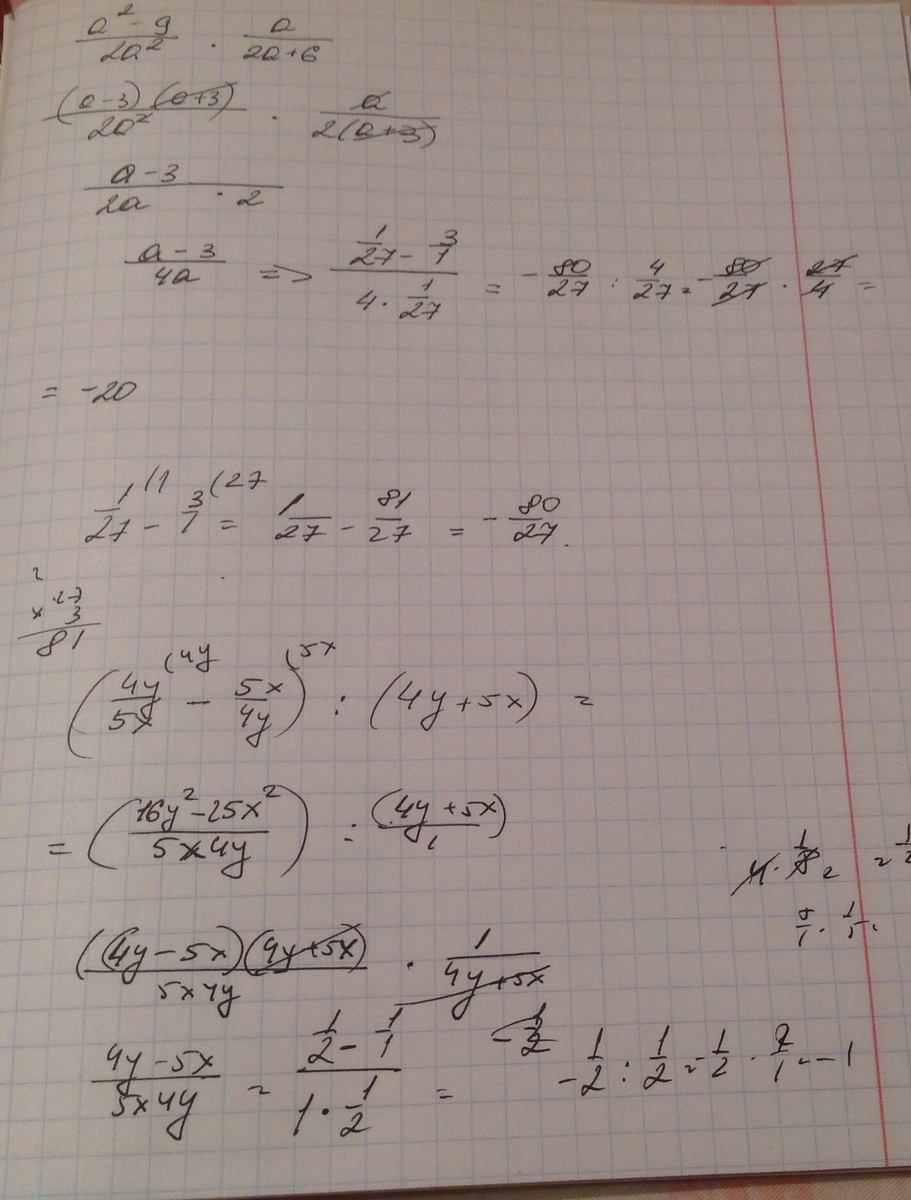 a² - 9 / 2a² · a / 2a+6
(a-3)(a+3) / 2a² · a / 2(a+3)
a-3 / 2a · 2
a-3 / 4a => 1/27 - 3/1 / 4 · 1/27 = - 80/27 : 4/27 = - 80/27 · 27/4 =
= -20
1/27 (1 - 3/1 (27 = 1/27 - 81/27 = - 80/27.
2
x 27
3
81
(4y/5x (4y - 5x/4y (5x) : (4y+5x) =
= (16y² - 25x² / 5x4y) : (4y+5x) / 1
((4y-5x)(4y+5x) / 5x4y · 1 / 4y+5x
4y-5x / 5x4y = 1/2 - 1/1 / 1 · 1/2 = - 1/2 - 1/2 : 1/2 = - 1/2 · 2/1 = -1
4 · 1/8 = = 1/2